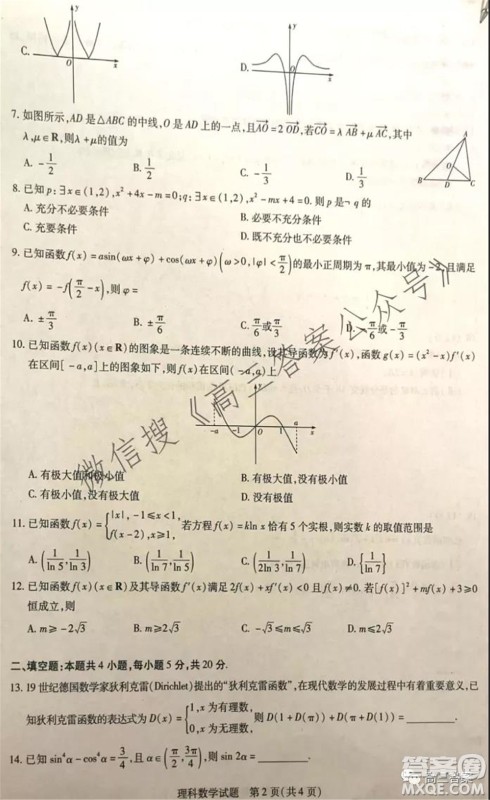 C.
D.
7. 如图所示,AD 是△ABC 的中线,O 是 AD 上的一点,且AO=2 OD,若CO=λ AB+μ AC,其中
λ,μ∈R,则λ+μ的值为
A. -1/2 B. 1/2 C. -1/3 D. 1/3
8. 已知 p:∃x∈(1,2),x²+4x-m=0;q:∃x∈(1,2),x²-mx+4=0. 则 p 是¬q 的
A. 充分不必要条件 B. 必要不充分条件
C. 充要条件 D. 既不充分也不必要条件
9. 已知函数 f(x)=asin(ωx+φ)+cos(ωx+φ)(ω>0,|φ|<π/2)的最小正周期为 π,其最小值为-2,且满足
f(x)=-f(π/2-x),则 φ=
A. ±π/3 B. ±π/6 C. π/6或π/3 D. -π/6或-π/3
10. 已知函数 f(x)(x∈R)的图象是一条连续不断的曲线,设其导函数为 f′(x),函数 g(x)=(x²-x)f′(x)
在区间[-a,a]上的图象如下,则 f(x)在区间(-a,a)上
A. 有极大值和极小值 B. 有极大值,没有极小值
C. 有极小值,没有极大值 D. 没有极值
11. 已知函数 f(x)={|x|,-1≤x<1, f(x-2),x≥1, 若方程 f(x)=kln x 恰有 5 个实根,则实数 k 的取值范围是
A. (1/ln 5,1/ln 3) B. (1/ln 7,1/ln 5) C. (1/2ln 3,1/ln 7) D. {1/ln 7}
12. 已知函数 f(x)(x∈R)及其导函数 f′(x)满足 2f(x)+xf′(x)<0 且 f(x)≠0. 若[f(x)]²+mf(x)+3≥0
恒成立,则
A. m≥-2√3 B. m≥2√3 C. -2√3≤m≤2√3 D. m≤2√3
二、填空题:本题共 4 小题,每小题 5 分,共 20 分.
13. 19 世纪德国数学家狄利克雷(Dirichlet)提出的“狄利克雷函数”,在现代数学的发展过程中有着重要意义,已
知狄利克雷函数的表达式为 D(x)={1,x为有理数, 0,x为无理数, 则 D(1+D(π))+D(1)+D(π)=________.
14. 已知 sin⁴α-cos⁴α=3/4,且 α∈(π/2,3π/4),则 sin 2α=________.
理科数学试题 第 2 页(共 4 页)
微信搜《高三答案公众号》
高三答案
答案圈
MXQE.COM